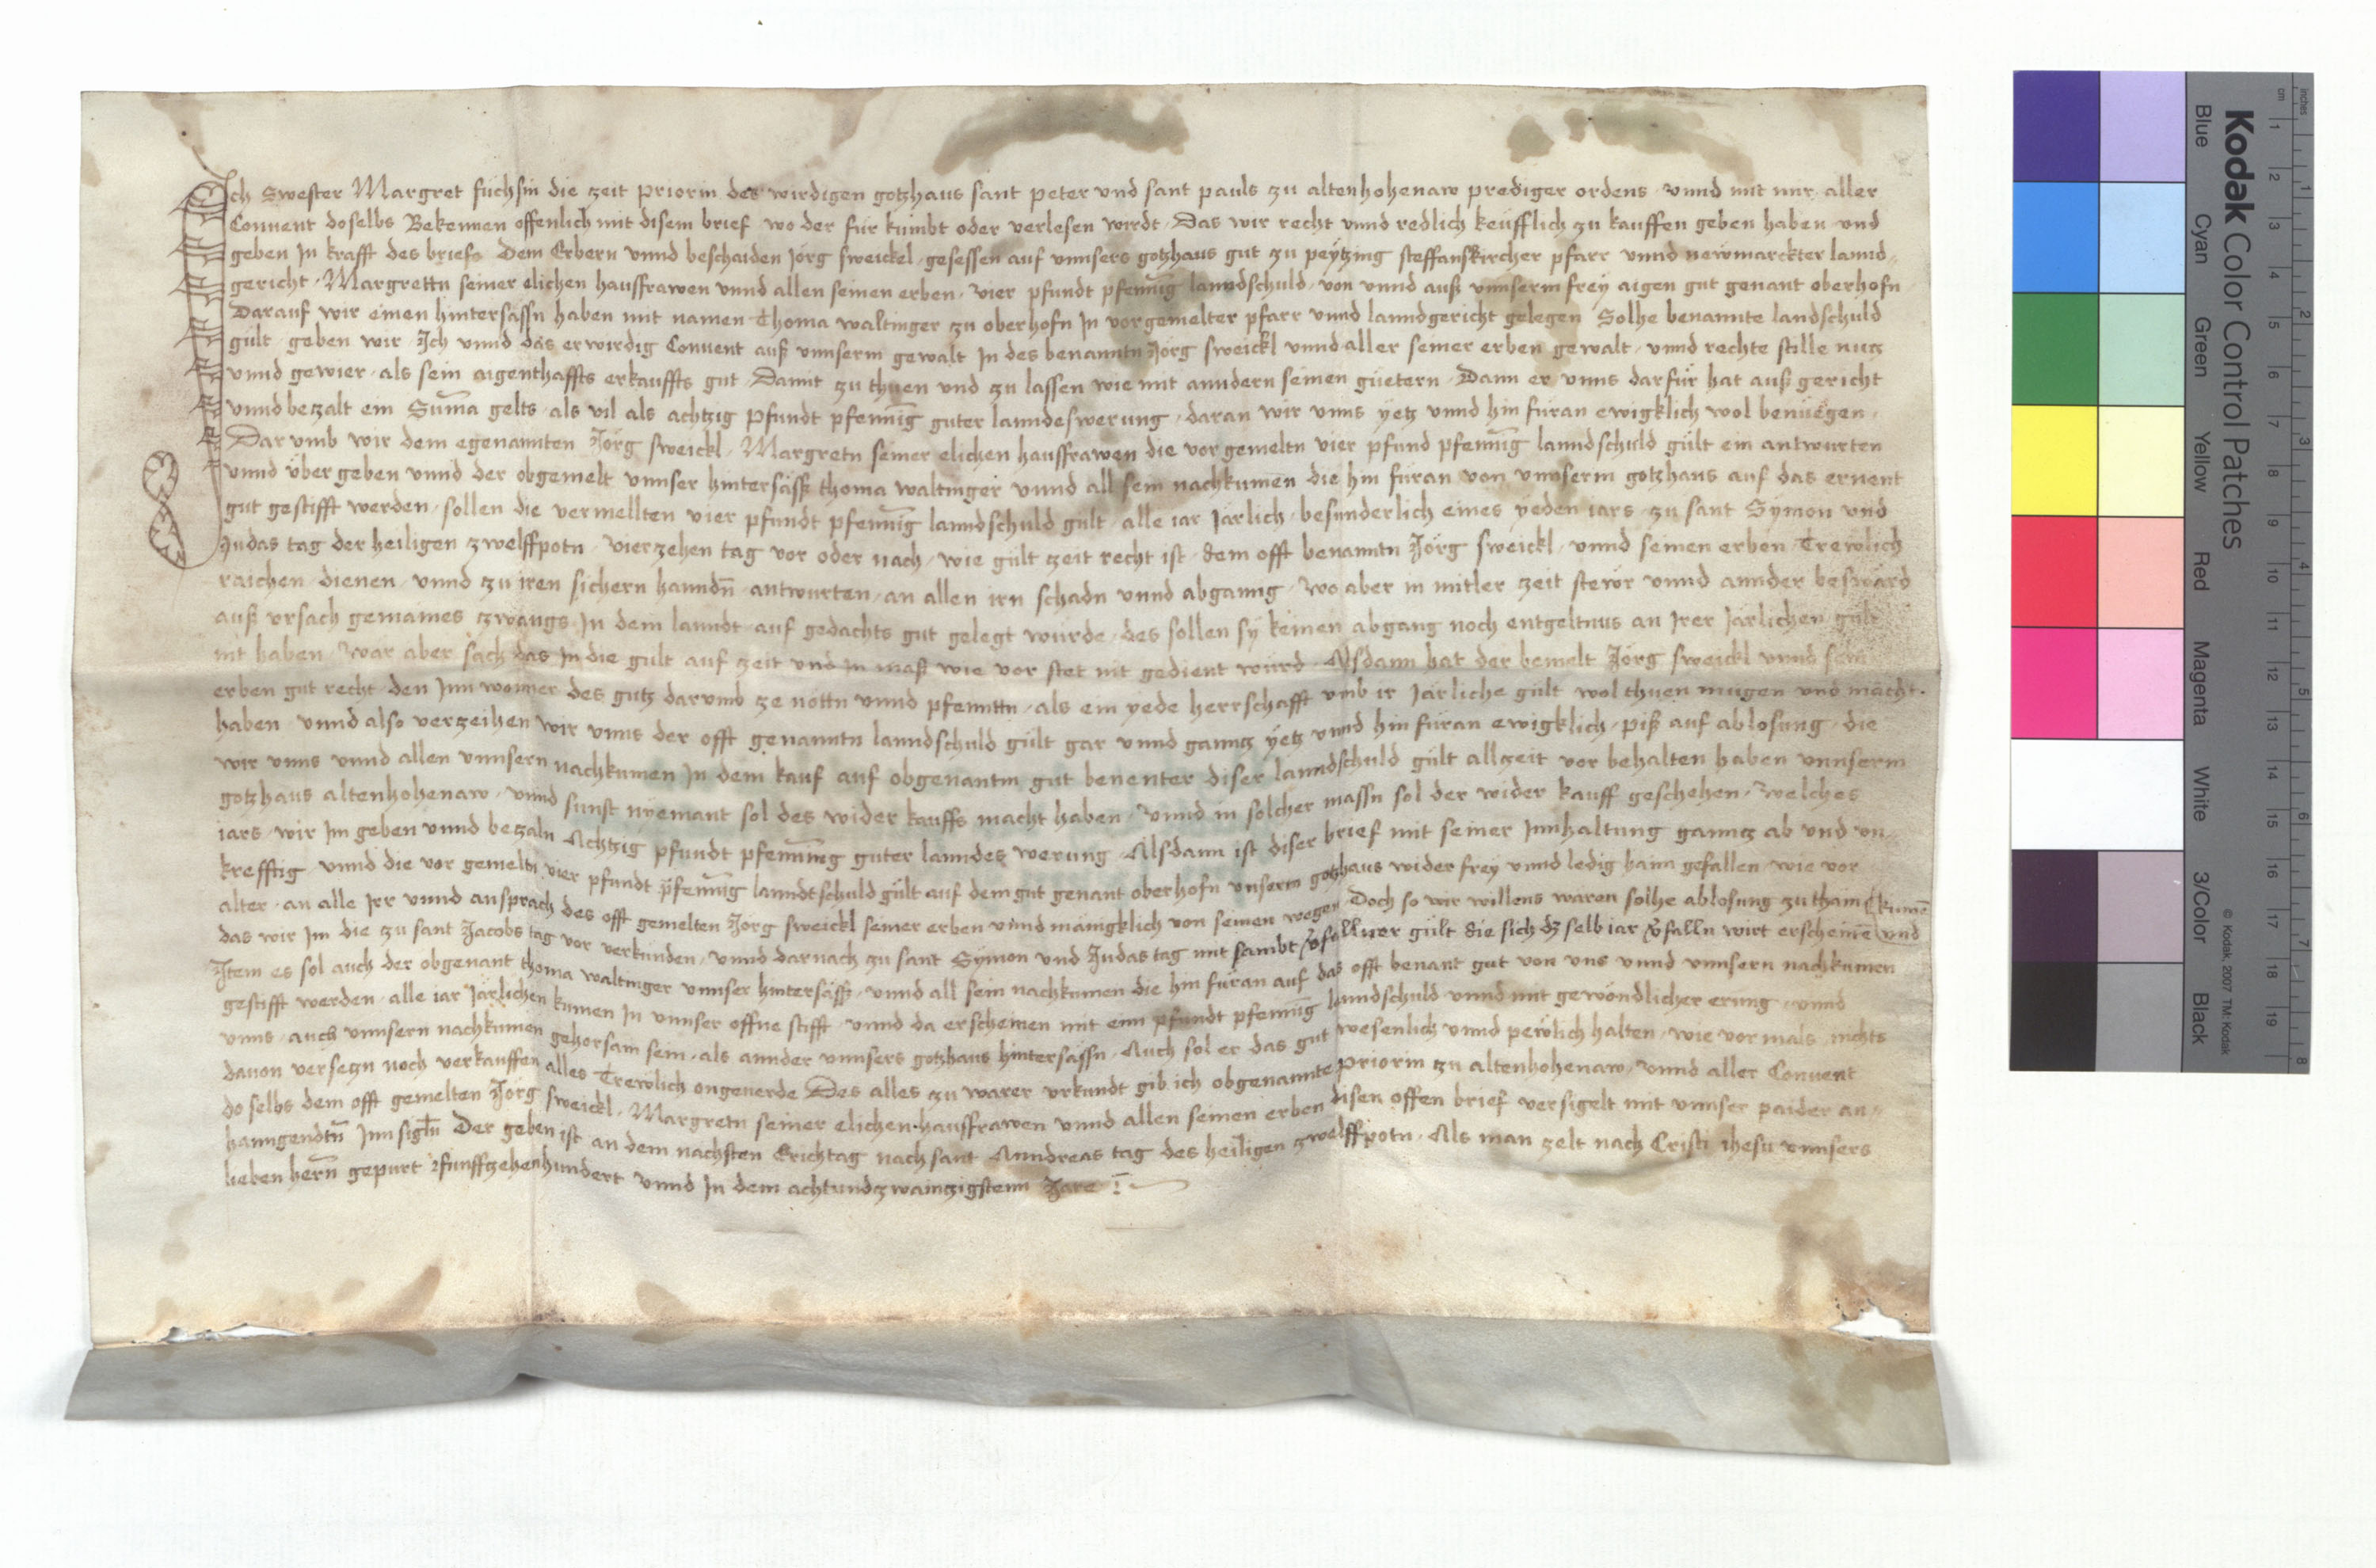 Ich Swester Margret füchsin die zeit priorin des wirdigen gotzhaus sant peter und sant pauls zu altenhohenaw prediger ordens vnnd mit mir aller
Conuent doselbs Bekennen offenlich mit disem brief wo der für kumbt oder verlesen wirdt Das wir recht vnnd redlich keüfflich zu kauffen geben haben vnd
geben In krafft des briefs Dem Erbern vnnd beschaiden Jorg sweickel gesessen auf vnnsers gotzhaus gut zu peytzing steffanskircher pfarr vnnd newmarckter lannd
gericht Margrettn seiner elichen hausfrawen vnnd allen seinen erben vier pfundt pfennig lanndschuld von vnnd auß vnnserm frey aigen gut genant oberhofn
Darauf wir einen hintersässn haben mit namen Thoma waltinger zu oberhofn In vorgemelter pfarr vnnd lanndgericht gelegen Solhe benannte landschuld
gült geben wir Ich vnnd das erwirdig Conuent auß vnnserm gewalt In des benanntn Jörg sweickl vnnd aller seiner erben gewalt vnnd rechte stille nutz
vnnd gewier als sein aigenthaffts erkauffts gut Damit zu thuen und zu lassen wie mit anndern seinen güetern Dann er vnns darfür hat auß gericht
vnnd bezalt ein Suma gelts als vil als achtzig pfundt pfennig guter lanndeswerung daran wir vnns yetz vnnd hin füran ewigklich wol benüegen
Dar vmb wir dem egenannten Jörg sweickl Margretn seiner elichen hausfrawen die vorgemeltn vier pfund pfennig lanndschuld gült ein antwurten
vnnd über geben vnnd der obgemelt vnnser hintersäss thoma waltinger vnnd all sein nachkumen die hin füran von vnnserm gotzhaus auf das ernent
gut gestifft werden sollen die vermellten vier pfundt pfennig lanndschuld gült alle iar Järlich besunderlich eines yeden iars zu sant Symon vnd
Judas tag der heiligen zwelffpotn vierzehen tag vor oder nach wie gült zeit recht ist dem offt benanntn Jörg sweickl vnnd seinen erben Trewlich
raichen dienen vnnd zu iren sichern hanndn antwurten an allen irn schadn vnnd abganng Wo aber in mitler zeit stewr vnnd annder beswärd
auß vrsach gemaines zwangs In dem lanndt auf gedachts gut gelegt würde des sollen sy keinen abgang noch entgeltnus an Irer Järlichen gült
nit haben Wär aber sach das In die gült auf zeit vnd in mass wie vor stet nit gedient würd Alsdann hat der bemelt Jörg sweickl vnnd sein
erben gut recht den Inn woner des gutz darumb ze nöttn vnnd pfenntn als ein yede herrschafft vmb ir Järliche gült wol thuen mugen vnd macht
haben vnnd also verzeihen wir vnns der offt genanntn lanndschuld gült gar vnnd ganntz yetz vnnd hin füran ewigklich piß auf ablosung die
wir vnns vnnd allen vnnsern nachkumen In dem kauf auf obgenantm gut benenter diser lanndschuld gült allzeit vor behalten haben vnnserm
gotzhaus altenhohenaw vnnd sunst nyemant sol des wider kauffs macht haben Vnnd in solcher massn sol der wider kauff geschehen Welches
iars wir Im geben vnnd bezaln Achtzig pfundt pfenning guter lanndes werung Alsdann ist diser brief mit seiner Innhaltung ganntz ab vnd vn
krefftig vnnd die vor gemeltn vier pfundt pfennig lanndtschuld gült auf dem gut genant oberhofn vnserm gotzhaus wider frey vnnd ledig haim gefallen wie vor
alter an alle Irr vnnd ansprach des offt gemelten Jörg sweickl seiner erben vnnd mänigklich von seinen wegen Doch so wir willens waren solhe ablosung zu thain kumen
das wir Im die zu sant Jacobs tag vor verkunden vnnd darnach zu sant Symon vnd Judas tag mit sambt v̈fallner gült die sich dz selb iar v̈falln wirt erscheinē vnd
Item es sol auch der obgenant thoma waltinger vnnser hintersäss vnnd all sein nachkumen die hin füran auf das offt benant gut von vns vnnd vnnsern nachkumen
gestifft werden alle iar Järlichen kumen In vnnser offne stifft vnnd da erscheinen mit eim pfundt pfennig lanndschuld vnnd mit gewöndlicher erung vnnd
vnns auch vnnsern nachkumen gehorsam sein als annder vnnsers gotzhaus hintersässn Auch sol er das gut wesenlich vnnd pewlich halten wie vormals nichts
dauon versetzn noch verkauffen alles Trewlich ongeuerde Des alles zu warer vrkundt gib ich obgenannte priorin zu altenhohenaw vnnd aller Conuent
do selbs dem offt gemelten Jörg sweickl Margretn seiner elichen hausfrawen vnnd allen seinen erben disen offen brief versigelt mit vnnser paider an
hanngendtn Innsigln Der geben ist an dem nachsten Erichtag nach sant Anndreas tag des heiligen zwelffpotn Als man zelt nach Cristi ihesu vnnsers
lieben hern gepurt funffzehenhundert vnnd In dem achtundzwainzigstenn Jare
Kodak Color Control Patches
Blue Cyan Green Yellow Red Magenta White 3/Color Black
© Kodak, 2007 TM: Kodak
inches 1 2 3 4 5 6 7 8
cm 1 2 3 4 5 6 7 8 9 10 11 12 13 14 15 16 17 18 19